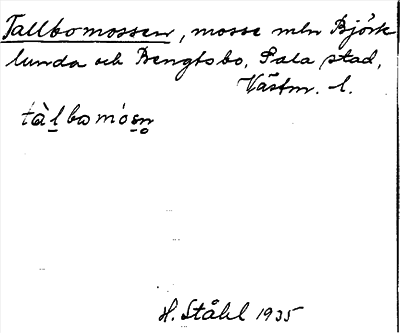 Tallbomossen, mosse mln Björk
lunda och Bengtsbo, Sala stad,
Västm. l.
tàl̲bomósn̥
H. Ståhl 1935